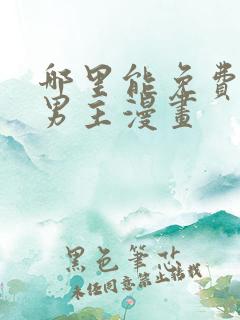 哪里能免費
男主漫畫
黑色筆芯
未经同意禁止转载